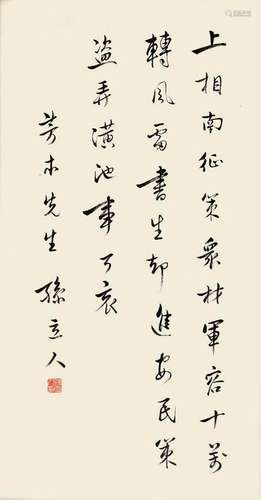 上相南征策眾材軍容十萬
轉風雷書生却進安民策
盜弄潢池事可哀
芳木先生 孫立人